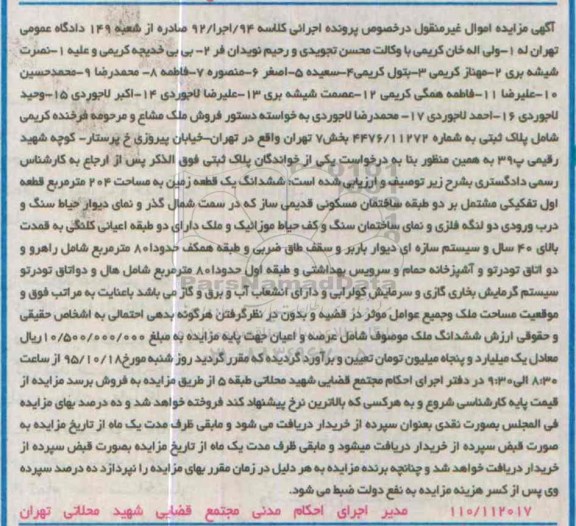 آگهی مزایده اموال غیرمنقول درخصوص پرونده اجرائی کلاسه ۹۲/اجرا/۹۴ صادره از شعبه ۱۴۹ دادگاه عمومی
تهران له ۱-ولی اله خان کریمی با وکالت محسن تجویدی و رحیم نویدان فر ۲- بی بی خدیجه کریمی و علیه ۱-نصرت
شیشه بری ۲-مهناز کریمی ۳-بتول کریمی۴-سعیده ۵-اصغر ۶-منصوره ۷-فاطمه ۸- محمدرضا ۹-محمدحسین
۱۰-علیرضا ۱۱-فاطمه همگی کریمی ۱۲-عصمت شیشه بری ۱۳-علیرضا لاجوردی ۱۴-اکبر لاجوردی ۱۵-وحید
لاجوردی ۱۶-احمد لاجوردی ۱۷- محمدرضا لاجوردی به خواسته دستور فروش ملک مشاع و مرحومه فرخنده کریمی
شامل پلاک ثبتی به شماره ۴۴۷۶/۱۱۲۷۲ بخش۷ تهران واقع در تهران-خیابان پیروزی خ پرستار- کوچه شهید
رقیمی پ۳۹ به همین منظور بنا به درخواست یکی از خواندگان پلاک ثبتی فوق الذکر پس از ارجاع به کارشناس
رسمی دادگستری بشرح زیر توصیف و ارزیابی شده است: ششدانگ یک قطعه زمین به مساحت ۲۰۴ مترمربع قطعه
اول تفکیکی مشتمل بر دو طبقه ساختمان مسکونی قدیمی ساز که در سمت شمال گذر و نمای دیوار حیاط سنگ و
درب ورودی دو لنگه فلزی و نمای ساختمان سنگ و کف حیاط موزائیک و ملک دارای دو طبقه اعیانی کلنگی به قدمت
بالای ۴۰ سال و سیستم سازه ای دیوار باربر و سقف طاق ضربی و طبقه همکف حدودا۸۰ مترمربع شامل راهرو و
دو اتاق تودرتو و آشپزخانه حمام و سرویس بهداشتی و طبقه اول حدودا۸۰ مترمربع شامل هال و دواتاق تودرتو
سیستم گرمایش بخاری گازی و سرمایش کولرآبی و دارای انشعاب آب و برق و گاز می باشد باعنایت به مراتب فوق و
موقعیت مساحت ملک وجمیع عوامل موثر در قضیه و بدون در نظرگرفتن هرگونه بدهی احتمالی به اشخاص حقیقی
و حقوقی ارزش ششدانگ ملک موصوف شامل عرصه و اعیان جهت پایه مزایده به مبلغ ۱۰/۵۰۰/۰۰۰/۰۰۰ ریال
معادل یک میلیارد و پنجاه میلیون تومان تعیین و برآورد گردیده که مقرر گردید روز شنبه مورخ۹۵/۱۰/۱۸ از ساعت
۸:۳۰ الی۹:۳۰ در دفتر اجرای احکام مجتمع قضایی شهید محلاتی طبقه ۵ از طریق مزایده به فروش برسد مزایده از
قیمت پایه کارشناسی شروع و به هرکسی که بالاترین نرخ پیشنهاد کند فروخته خواهد شد و ده درصد بهای مزایده
فی المجلس بصورت نقدی بعنوان سپرده از خریدار دریافت می شود و مابقی ظرف مدت یک ماه از تاریخ مزایده به
صورت قبض سپرده از خریدار دریافت میشود و مابقی ظرف مدت یک ماه از تاریخ مزایده بصورت قبض سپرده از
خریدار دریافت خواهد شد و چنانچه برنده مزایده به هر دلیل در زمان مقرر بهای مزایده را نپردازد ده درصد سپرده
وی پس از کسر هزینه مزایده به نفع دولت ضبط می شود.
۱۱۰/۱۱۲۰۱۷ مدیر اجرای احکام مدنی مجتمع قضایی شهید محلاتی تهران
ParsNamadData